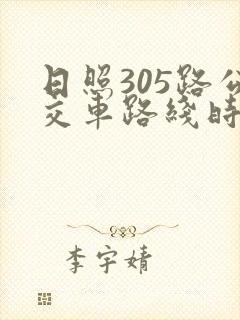 日照305路公
交车路线时
李宇婧